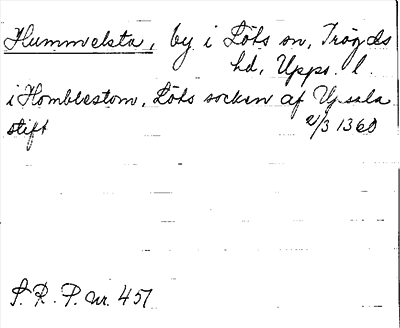 Hummelsta, by i Löts sn, Trögds
hd, Upps. l.
i Homblestom, Löts socken af Upsala
stift 2/3 1360
S. R. P. nr. 457